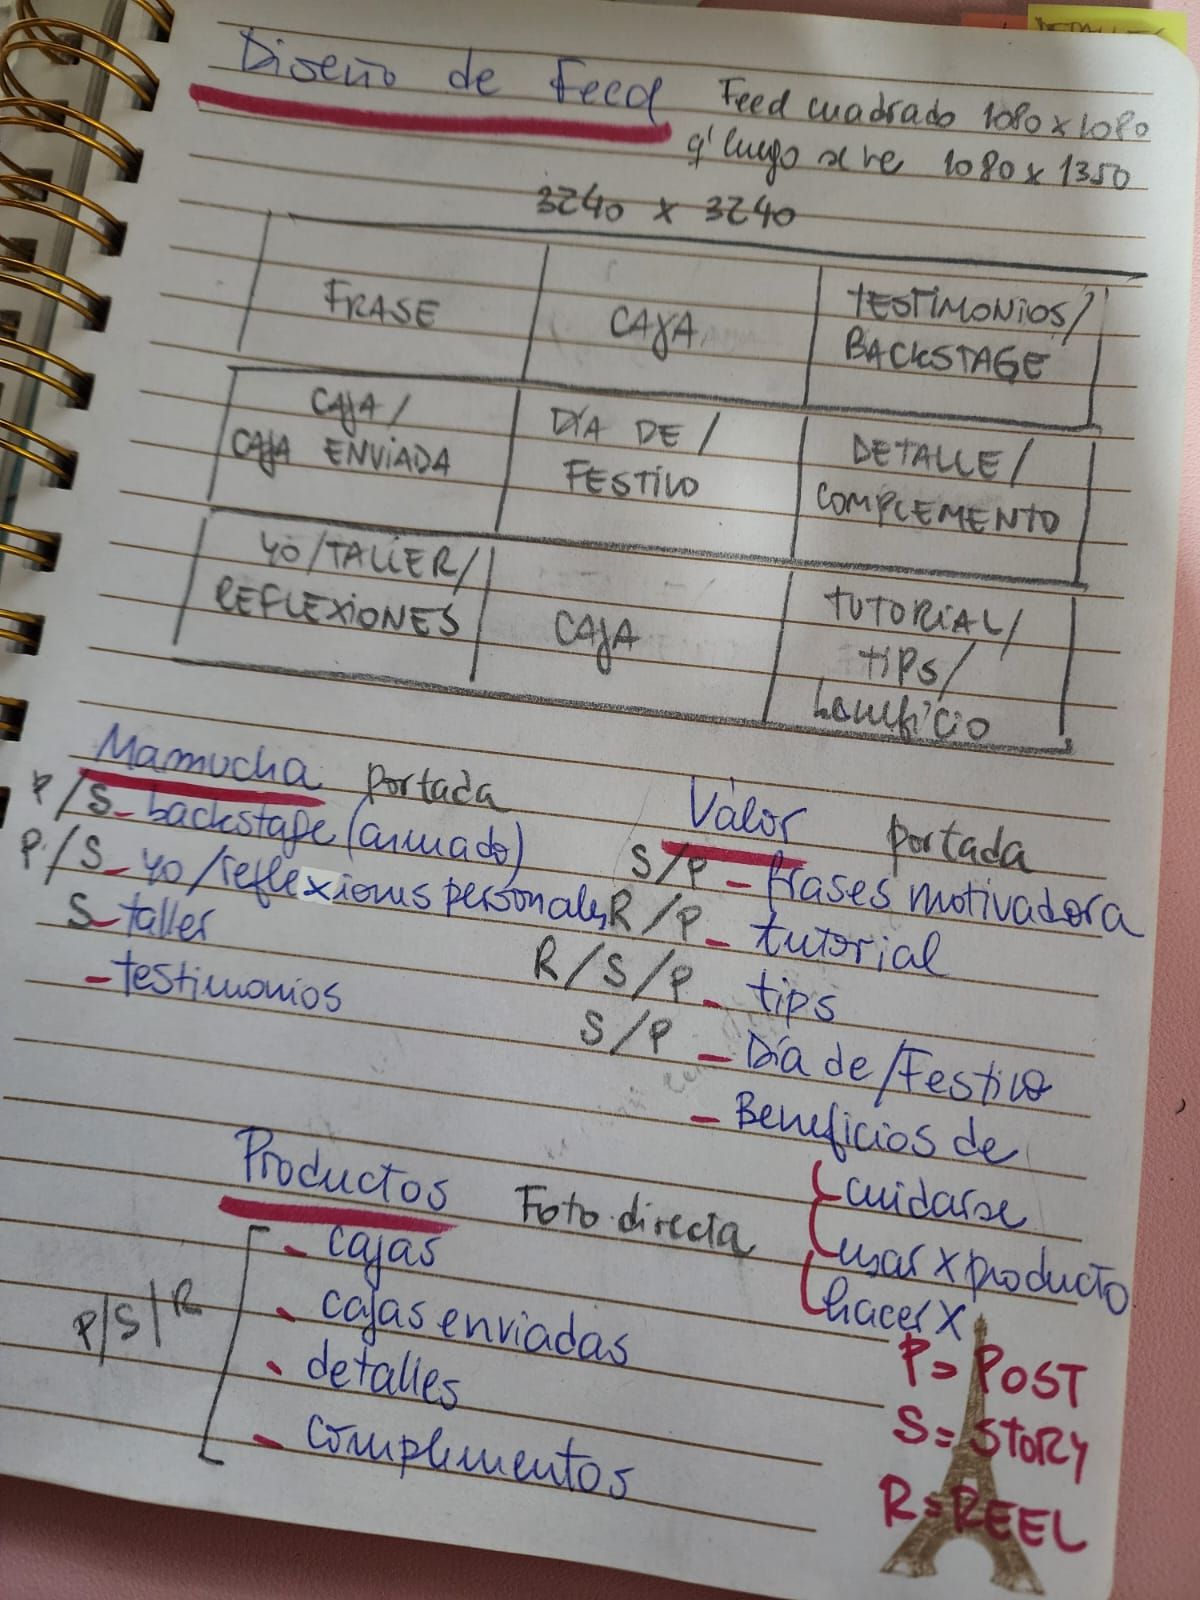 Diseño de Feed
Feed cuadrado 1080 x 1080
q' luego se ve 1080 x 1350
3240 x 3240
FRASE
CAJA
TESTIMONIOS/
BACKSTAGE
CAJA/
CAJA ENVIADA
DÍA DE/
FESTIVO
DETALLE/
COMPLEMENTO
YO/TALLER/
REFLEXIONES
CAJA
TUTORIAL/
TIPS/
beneficio
Mamucha portada
P/S - backstage (armado)
P/S - yo/reflexiones personales
S - taller
- testimonios
Valor portada
S/P - frases motivadora
R/P - tutorial
R/S/P - tips
S/P - Día de/Festivo
- Beneficios de
cuidarse
usar x producto
hacer x
Productos Foto directa
P/S/R
- cajas
- cajas enviadas
- detalles
- complementos
P= POST
S= STORY
R= REEL